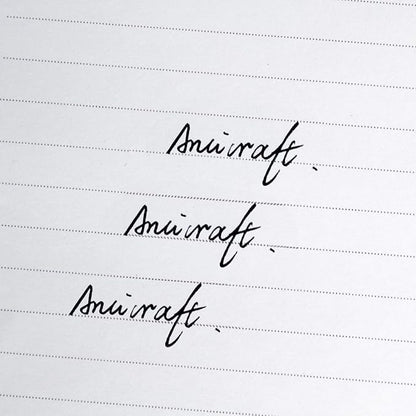 Ancicraft.
Ancicraft.
Ancicraft.